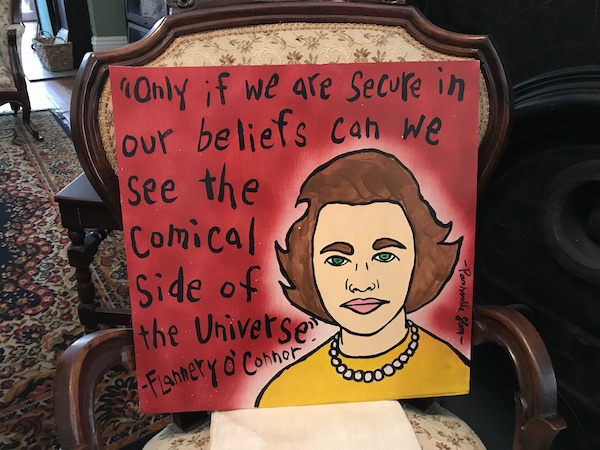 "Only if we are Secure in
our beliefs can we
See the
Comical
Side of
the Universe"
-Flannery O'Connor-